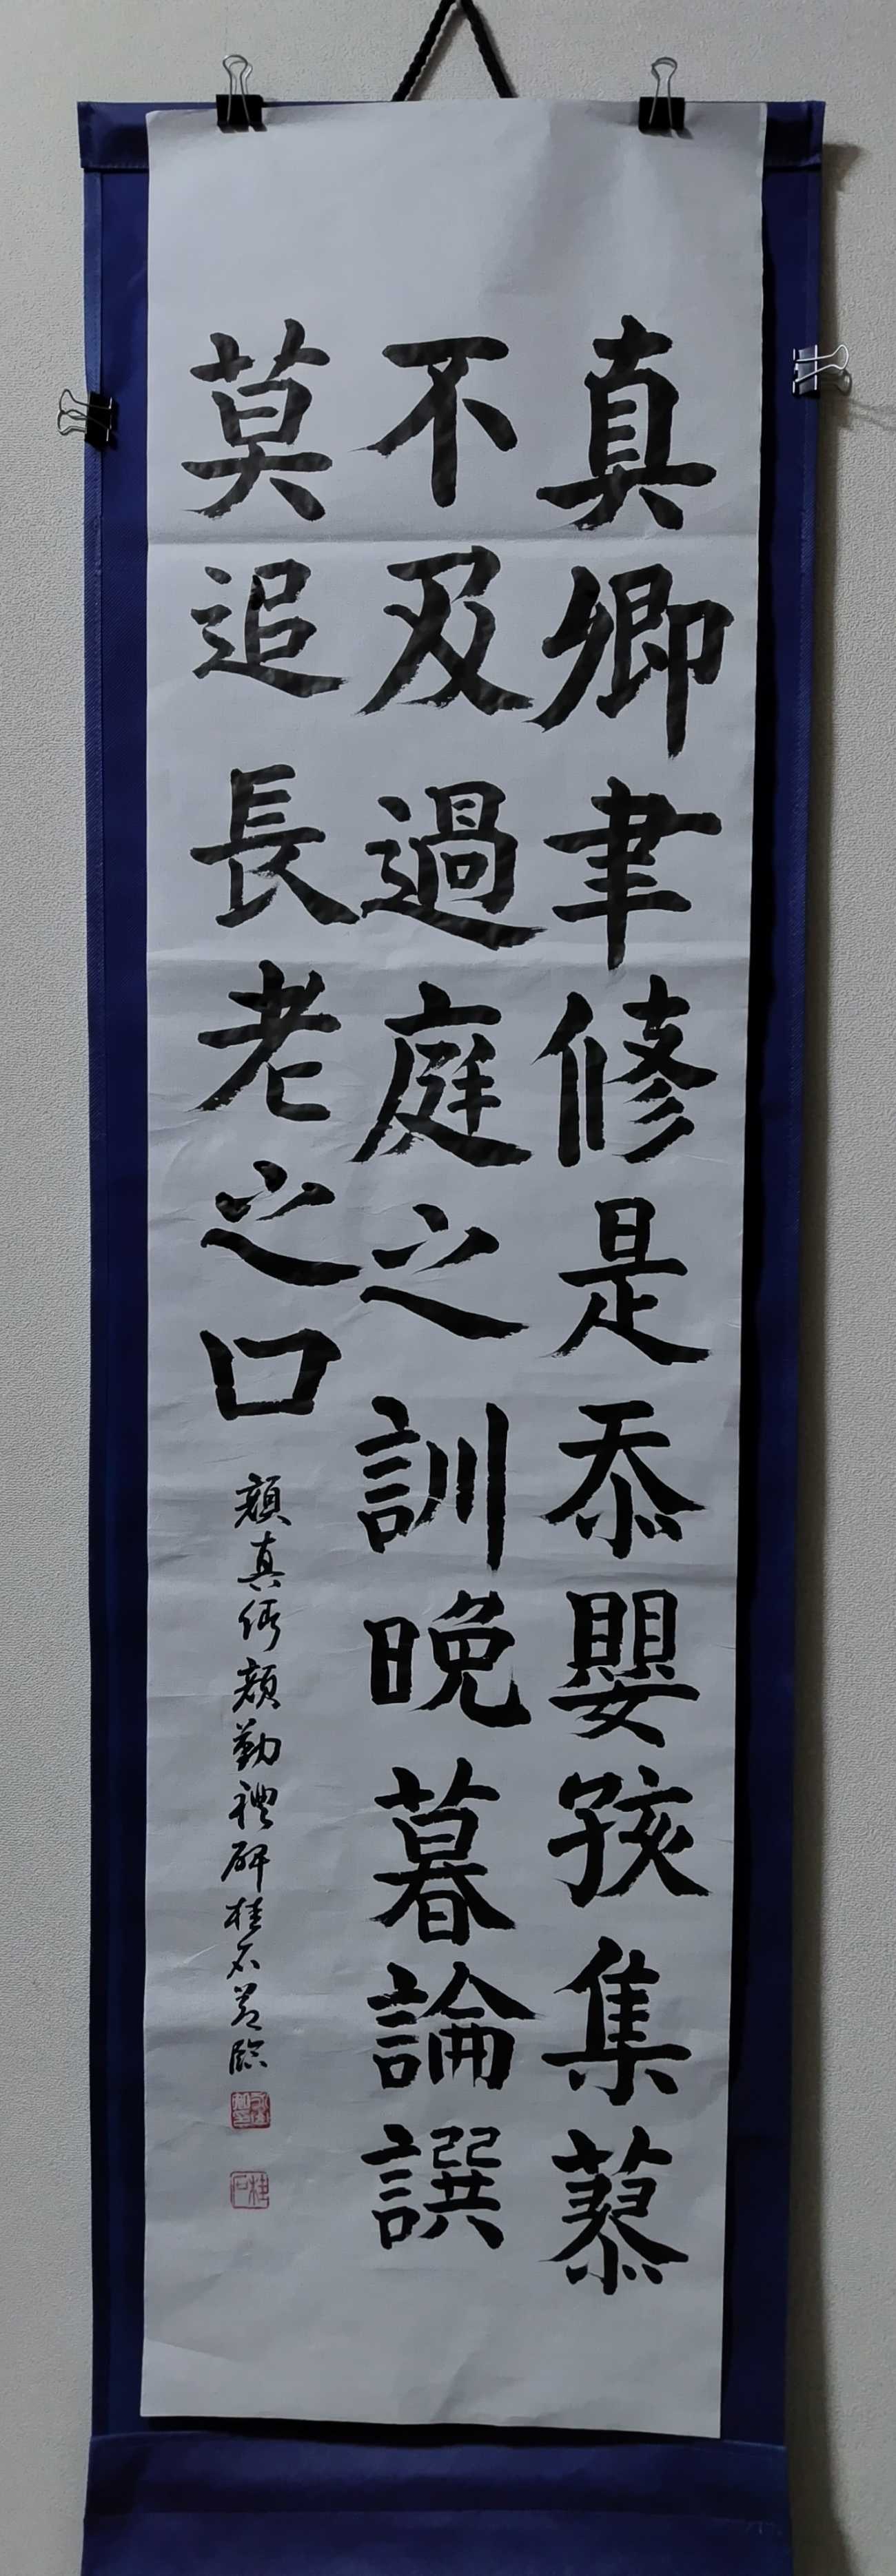 真卿聿修是忝嬰孩集蓼
不及過庭之訓晚暮論譔
莫追長老之口
顏真卿顏勤禮碑桂石書臨
桂石